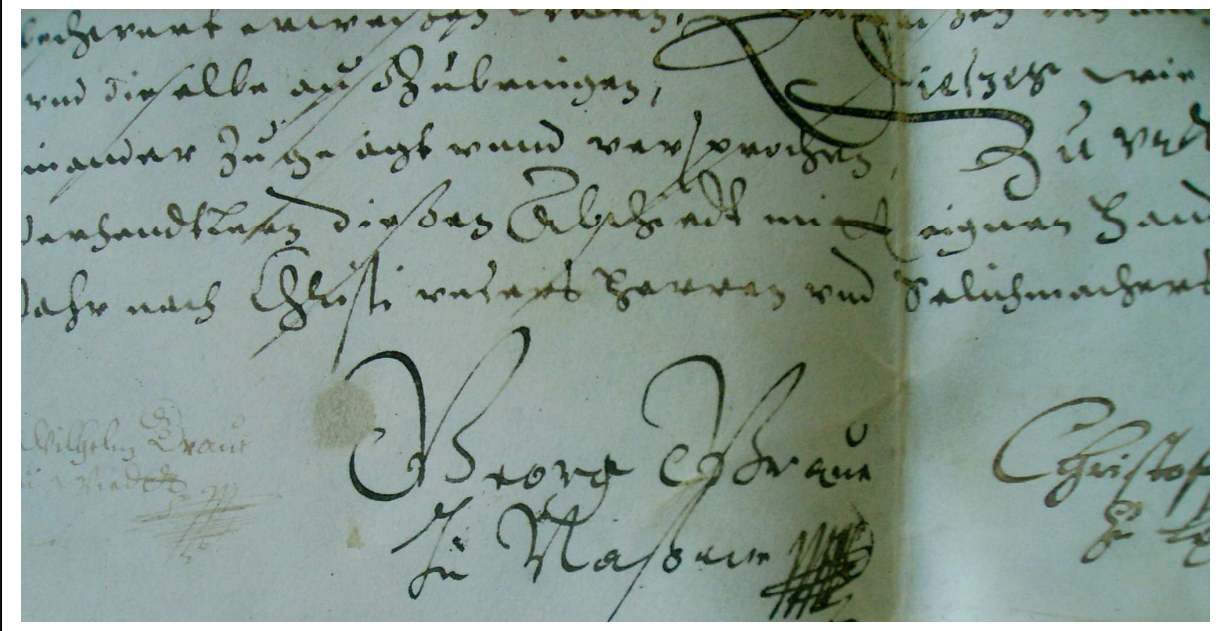 vnd dieselbe auß Zubringen, dieses wie
inander Zugesagt vnnd versprochen, Zu vrk
diesen Abschiedt mit eignen Hand
Jahr nach Christi vnsers Herren vnd Selichmachers
Wilhelm Graue
zu Wiedt
Georg Graue
Zu Naßaw
Christof